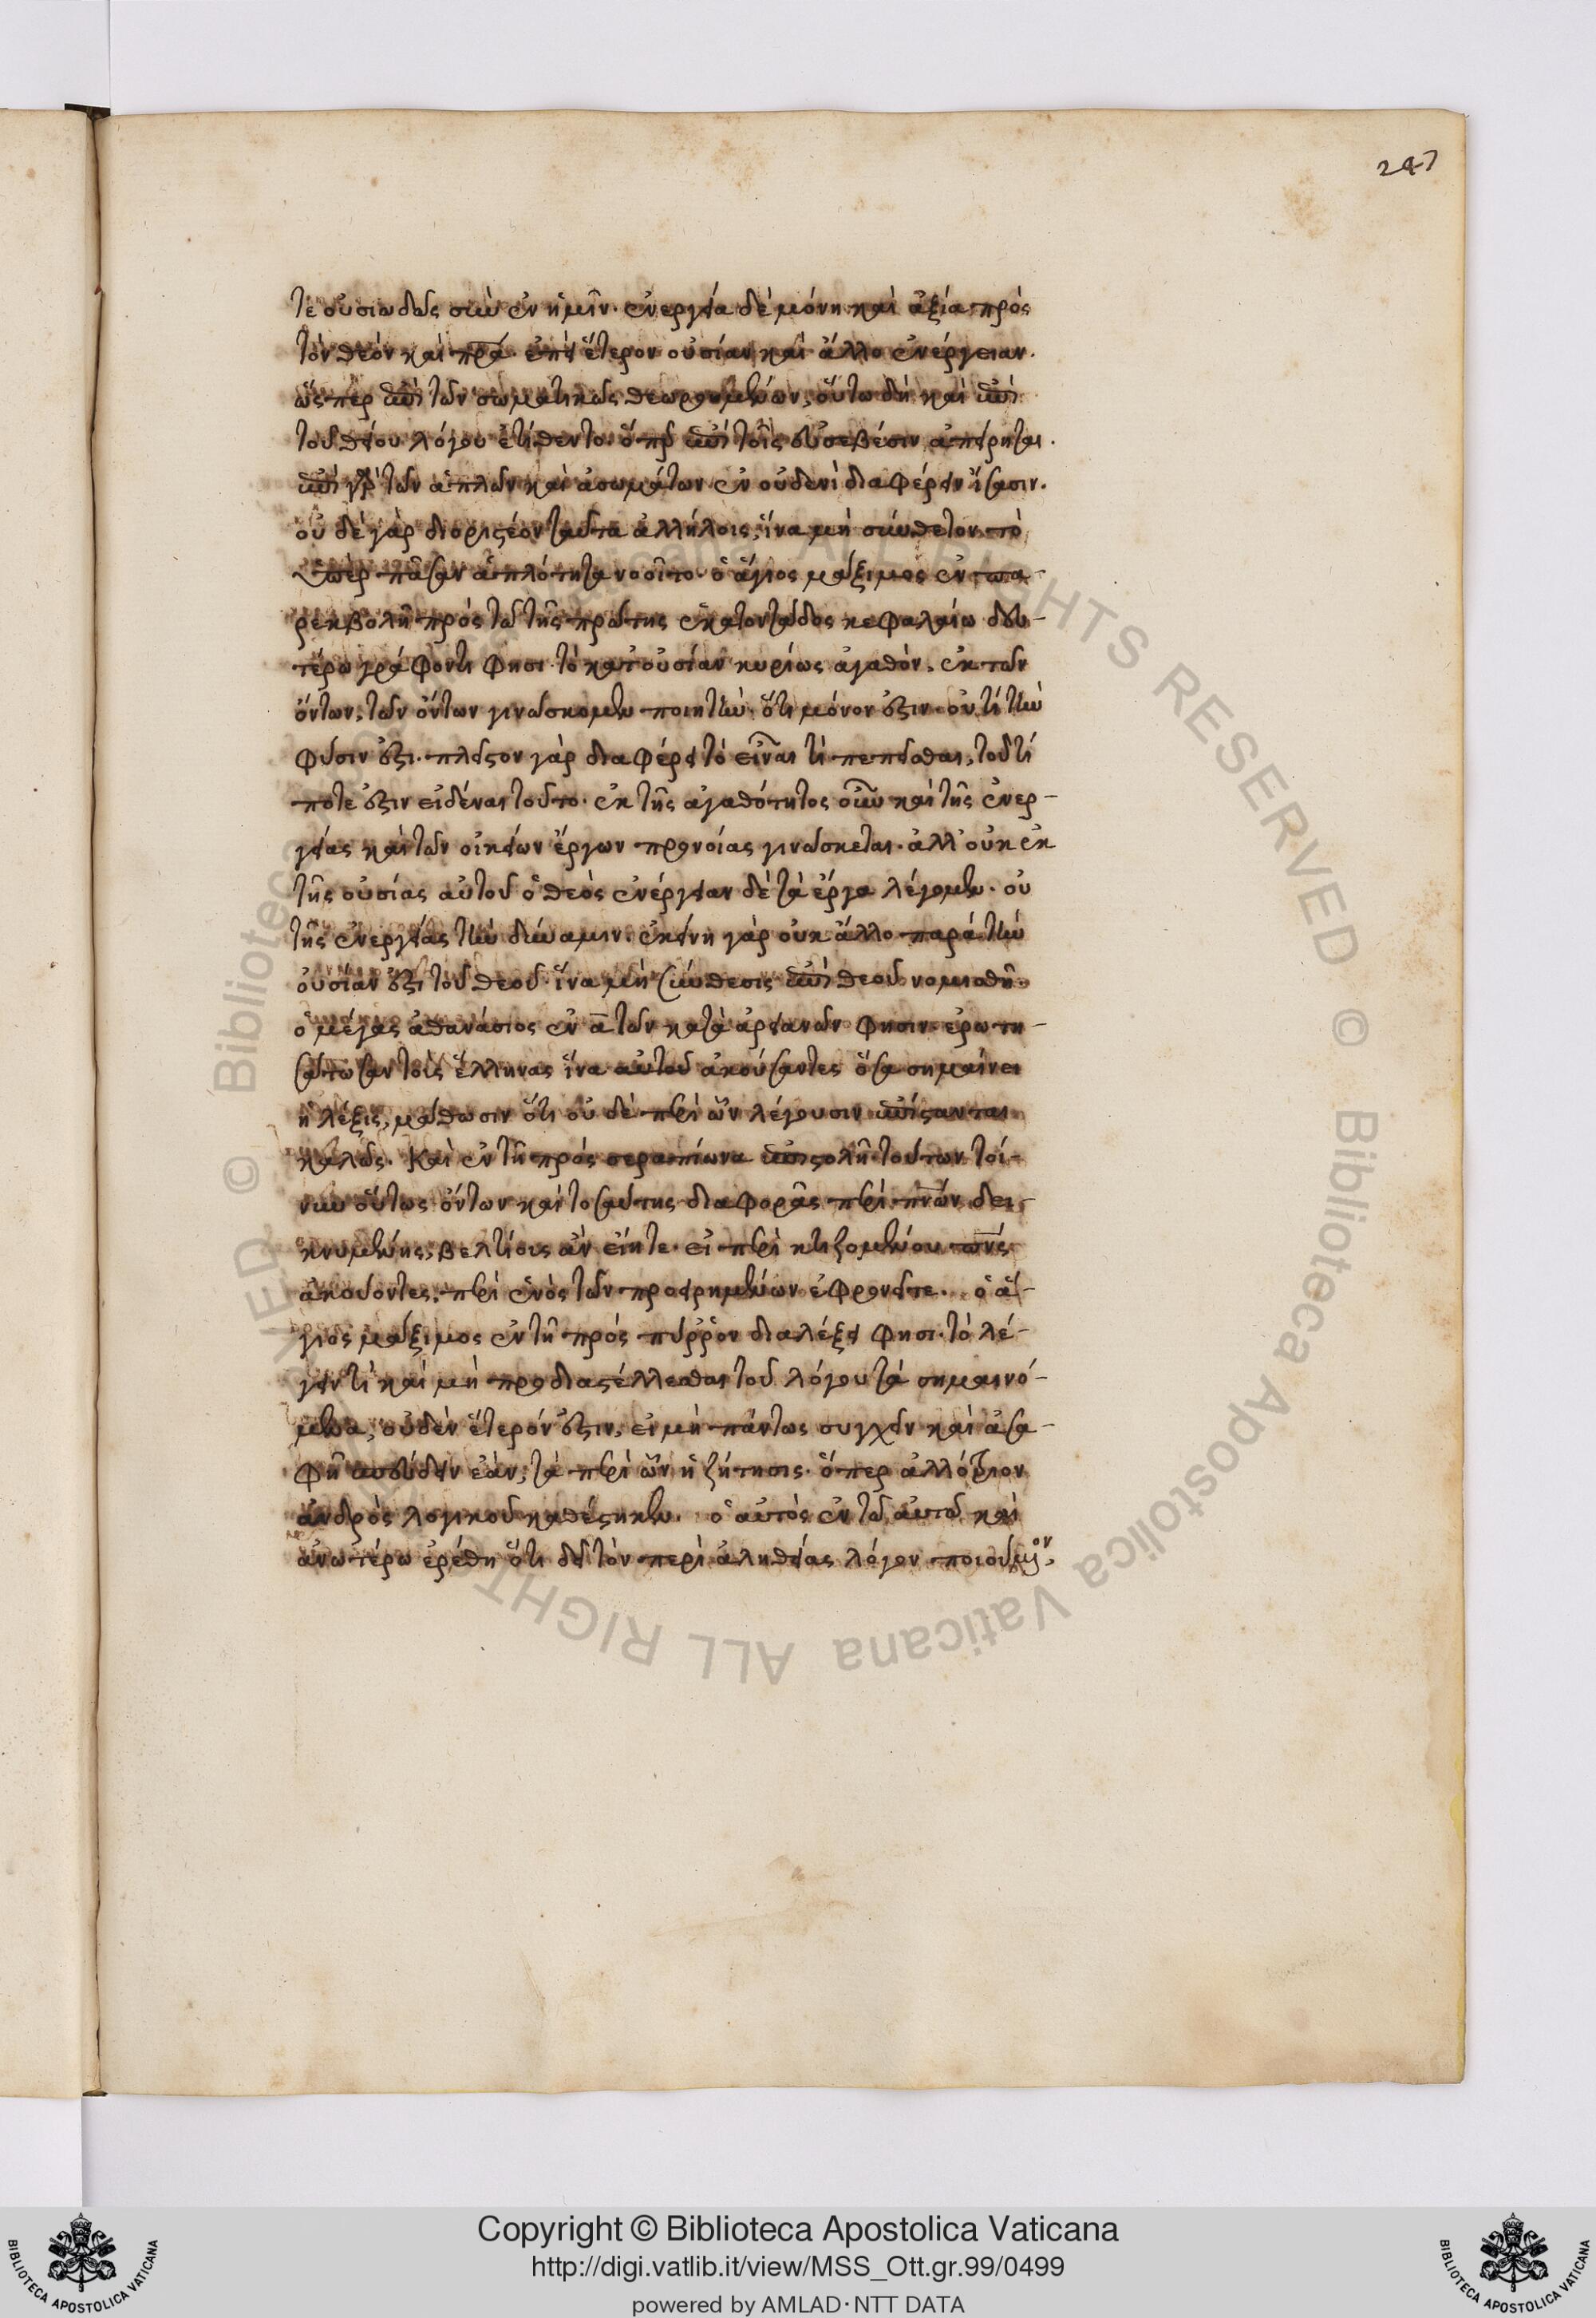 247
τε οὐσιωδῶς σὺν ἐν ἡμῖν· ἐνεργεία δὲ μόνη καὶ ἀξία πρὸς
τὸν θεὸν καὶ πρα· ἐπεὶ ἕτερον οὐσίαν καὶ ἄλλο ἐνέργειαν·
ὥσπερ ἐπὶ τῶν σωματικῶς θεωρουμένων, οὕτω δὴ καὶ ἐπὶ
τοῦ θείου λόγου ἐτίθεντο· ὅπερ ἐπὶ τοῖς εὐσεβέσιν ἀπείρηται·
ἐπὶ γὰρ τῶν ἁπλῶν καὶ ἀσωμάτων ἐν οὐδενὶ διαφέρειν ἴσασιν·
οὐδὲ γὰρ διοριστέον ταῦτα ἀλλήλοις, ἵνα μὴ σύνθετον τὸ
ὑπὲρ πᾶσαν ἁπλότητα νοοῖτο· ὁ ἅγιος μάξιμος ἐν πα-
ρεκβολῇ πρὸς τῷ τῆς πρώτης ἑκατοντάδος κεφαλαίω δευ-
τέρω γράφοντι φησι· τὸ κατ' οὐσίαν κυρίως ἀγαθόν· ἐκ τῶν
ὄντων, τῶν ὄντων γινώσκομεν ποιητὴν· ὅτι μόνον ἔστιν· οὐ τί τὴν
φύσιν ἐστι· πλεῖστον γὰρ διαφέρει τὸ εἶναι τὶ πεπεῖσθαι, τοῦ τί
ποτε ἔστιν εἰδέναι τοῦτο· ἐκ τῆς ἀγαθότητος οὖν καὶ τῆς ἐνερ-
γείας καὶ τῶν οἰκείων ἔργων προνοίας γινώσκεται· ἀλλ' οὐκ ἐκ
τῆς οὐσίας αὐτοῦ ὁ θεὸς ἐνέργειαν δὲ τὰ ἔργα λέγομεν· οὐ
τῆς ἐνεργείας τὴν δύναμιν· ἐκείνη γὰρ οὐκ ἄλλο παρὰ τὴν
οὐσίαν ἐστὶ τοῦ θεοῦ· ἵνα μὴ σύνθεσις ἐπὶ θεοῦ νομισθῇ·
ὁ μέγας ἀθανάσιος ἐν α τῶν κατὰ ἀρειανῶν φησιν· ἐρωτη-
σάτωσαν τοὺς ἕλληνας ἵνα αὐτοῦ ἀκούσαντες ὅσα σημαίνει
ἡ λέξις, μάθωσιν ὅτι οὐδὲ περὶ ὧν λέγουσιν ἐπίστανται
καλῶς· Καὶ ἐν τῇ πρὸς σεραπίωνα ἐπιστολῇ· τούτων τοί-
νυν οὕτως ὄντων καὶ τοσαύτης διαφορᾶς περὶ πνων δει-
κνυμένης, βελτίους ἂν εἴητε· εἰ περὶ κτιζομένου πνς
ἀκούοντες, περὶ ἑνὸς τῶν προειρημένων ἐφρονεῖτε· ὁ ἅ-
γιος μάξιμος ἐν τῇ πρὸς πύρρον διαλέξει φησι· τὸ λέ-
γειν τὶ καὶ μὴ προδιαστέλλεσθαι τοῦ λόγου τὰ σημαινό-
μενα, οὐδὲν ἕτερόν ἐστιν, εἰ μὴ πάντως συγχεῖν καὶ ἀσα-
φῆ σπεύδειν ἐᾶν, τὰ περὶ ὧν ἡ ζήτησις· ὅπερ ἀλλότριον
ἀνδρὸς λογικοῦ καθέστηκεν· ὁ αὐτὸς ἐν τῷ αὐτῷ καὶ
ἀνωτέρω ἐρέθη ὅτι δεῖ τὸν περὶ ἀληθείας λόγον ποιούμενον,
© Biblioteca Apostolica Vaticana ALL RIGHTS RESERVED
Copyright © Biblioteca Apostolica Vaticana
http://digi.vatlib.it/view/MSS_Ott.gr.99/0499
powered by AMLAD·NTT DATA
BIBLIOTECA APOSTOLICA VATICANA
BIBLIOTECA APOSTOLICA VATICANA